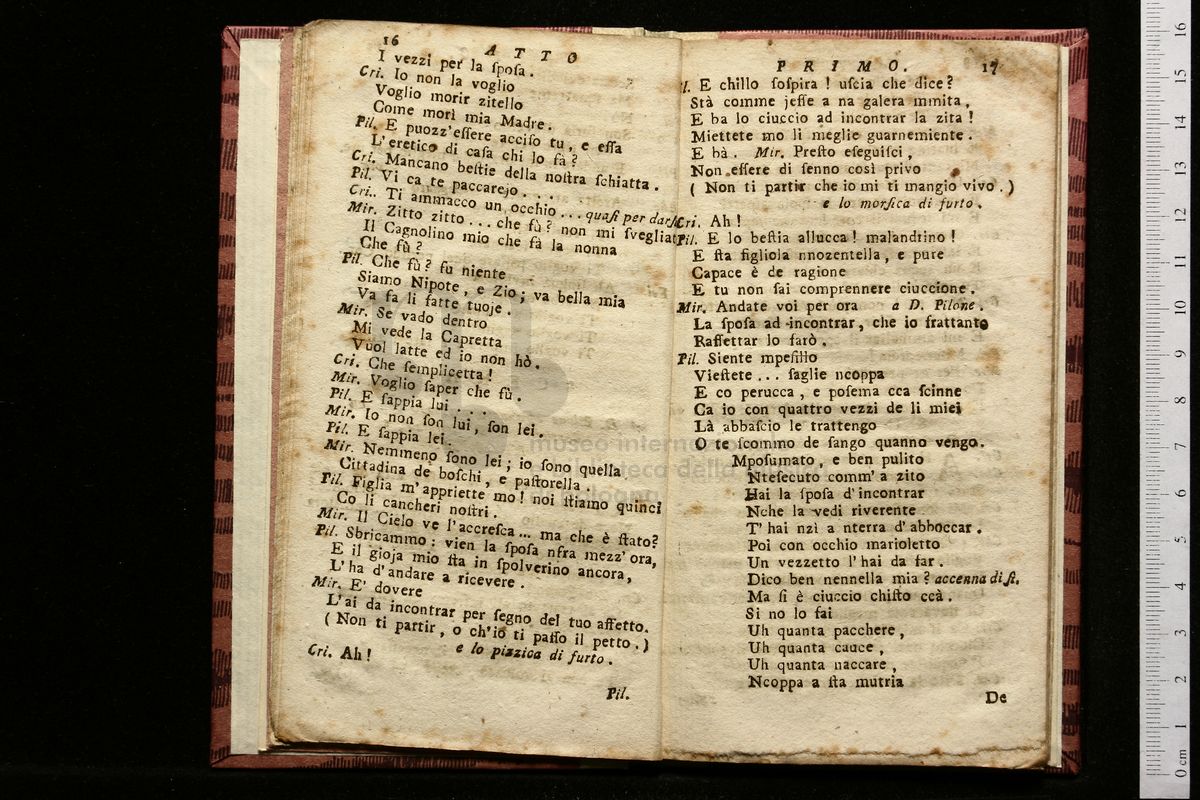 16 ATTO
I vezzi per la ſpoſa.
Cri. Io non la voglio
Voglio morir zitello
Come morì mia Madre.
Pil. E puozz'eſſere acciſo tu, e eſſa
L'eretico di caſa chi lo fà?
Cri. Mancano beſtie della noſtra ſchiatta.
Pil. Vì ca te paccarejo. . . .
Cri. Ti ammacco un occhio... quaſi per darſi.
Mir. Zitto zitto... che fù? non mi ſvegliat
Il Cagnolino mio che fà la nonna
Che fù?
Pil. Che fù? fu niente . . .
Siamo Nipote, e Zio; va bella mia
Va fa li fatte tuoje.
Mir. Se vado dentro
Mi vede la Capretta
Vuol latte ed io non hò.
Cri. Che ſemplicetta!
Mir. Voglio ſaper che fù.
Pil. E ſappia lui . . .
Mir. Io non ſon lui, ſon lei.
Pil. E ſappia lei.
Mir. Nemmeno ſono lei; io ſono quella
Cittadina de boſchi, e paſtorella.
Pil. Figlia m'appriette mo! noi ſtiamo quinci
Co li cancheri noſtri.
Mir. Il Cielo ve l'accreſca... ma che è ſtato?
Pil. Sbricammo: vien la ſpoſa nfra mezz'ora,
E il gioja mio ſta in ſpolverino ancora,
L'ha d'andare a ricevere.
Mir. E' dovere
L'ai da incontrar per ſegno del tuo affetto.
( Non ti partir, o ch'io ti paſſo il petto.)
e lo pizzica di furto.
Cri. Ah!
Pil.
PRIMO. 17
l. E chillo ſoſpira! uſcia che dice?
Stà comme jeſſe a na galera mmita,
E ba lo ciuccio ad incontrar la zita!
Miettete mo li meglie guarnemiente.
E bà. Mir. Preſto eſeguiſci,
Non eſſere di ſenno così privo
( Non ti partir che io mi ti mangio vivo.)
e lo morſica di furto.
Cri. Ah!
Pil. E lo beſtia allucca! malandrino!
E ſta figliola nnozentella, e pure
Capace è de ragione
E tu non ſai comprennere ciuccione.
Mir. Andate voi per ora a D. Pilone.
La ſpoſa ad incontrar, che io frattanto
Raſſettar lo farò.
Pil. Siente mpeſillo
Vieſtete... ſaglie ncoppa
E co perucca, e poſema cca ſcinne
Ca io con quattro vezzi de li miei
Là abbaſcio le trattengo
O te ſcommo de ſango quanno vengo.
Mpoſumato, e ben pulito
Nteſecuto comm'a zito
Hai la ſpoſa d'incontrar
Nche la vedi riverente
T'hai nzì a nterra d'abboccar.
Poi con occhio marioletto
Un vezzetto l'hai da far.
Dico ben nennella mia? accenna di ſì.
Ma ſi è ciuccio chiſto ccà.
Si no lo fai
Uh quanta pacchere,
Uh quanta cauce,
Uh quanta naccare,
Ncoppa a ſta mutria
De